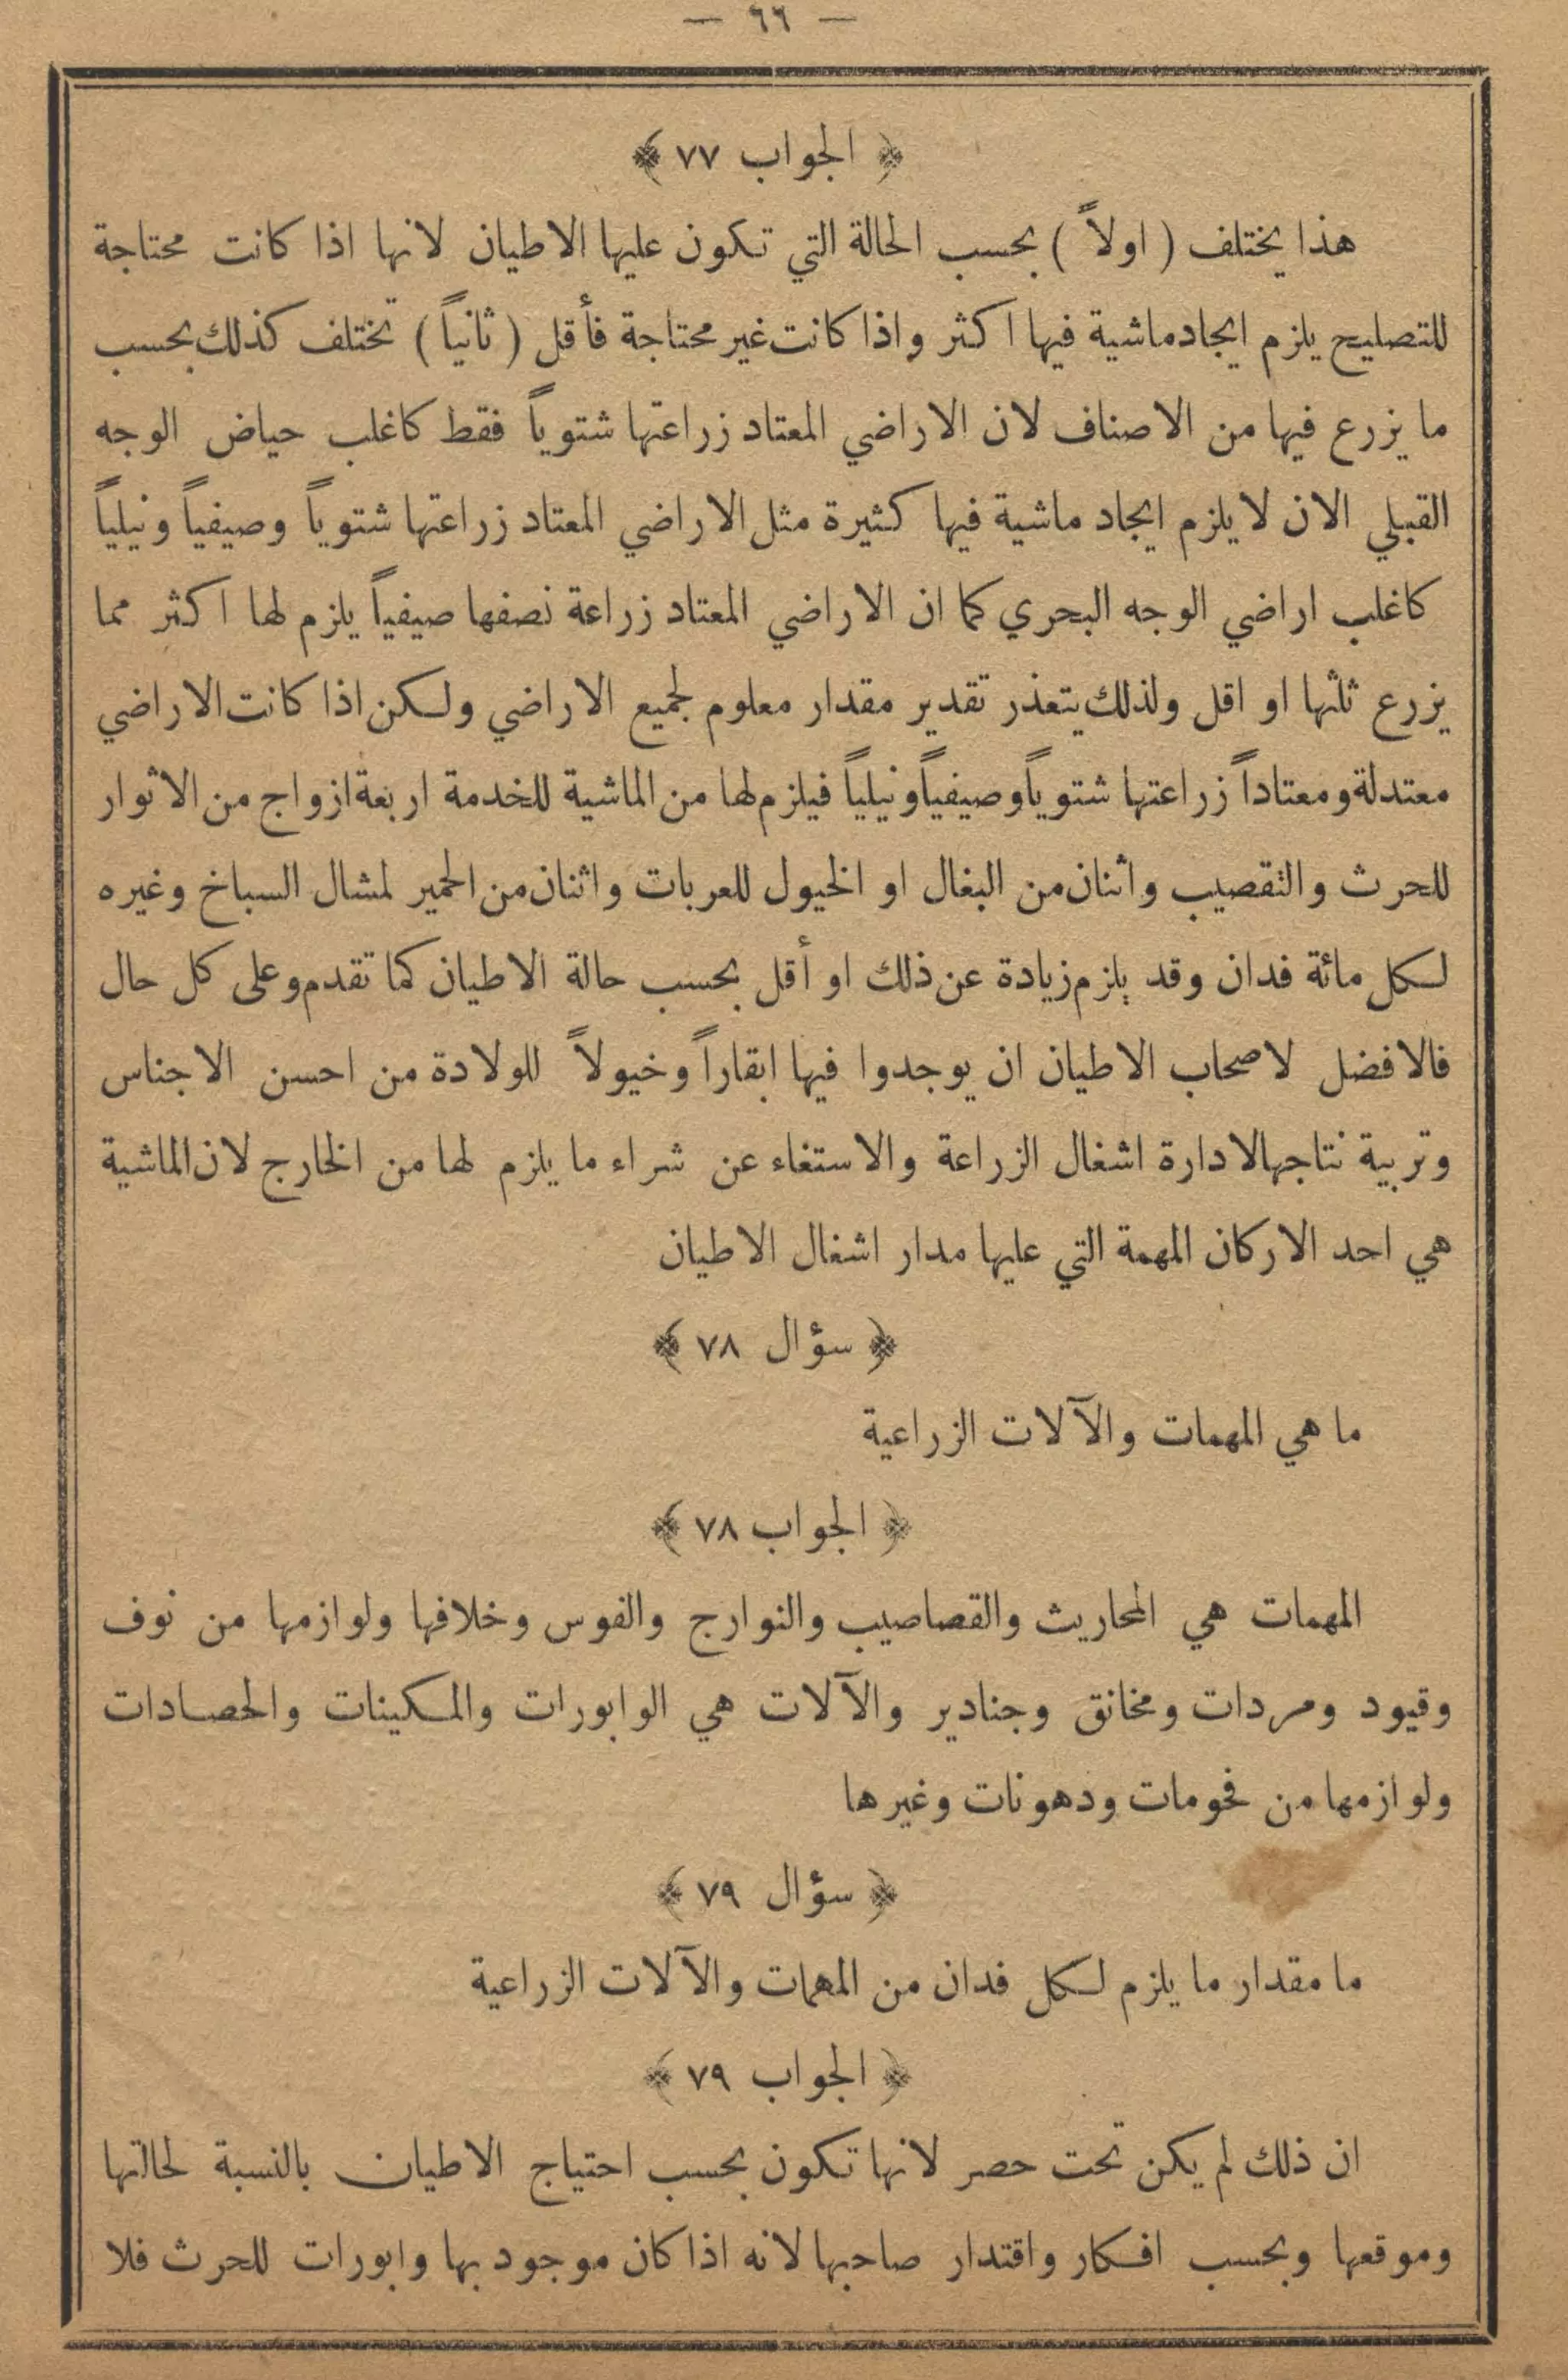 — ٦٦ —
﴿ الجواب ٧٧ ﴾
هذا يختلف ( اولاً ) بحسب الحالة التي تكون عليها الاطيان لانها اذا كانت محتاجة
للتصليح يلزم ايجاد ماشية فيها اكثر واذا كانت غير محتاجة فأقل ( ثانياً ) تختلف كذلك بحسب
ما يزرع فيها من الاصناف لان الاراضي المعتاد زراعتها شتوياً فقط كاغلب حياض الوجه
القبلي الان لا يلزم ايجاد ماشية فيها كثيرة مثل الاراضي المعتاد زراعتها شتوياً وصيفياً ونيلياً
كاغلب اراضي الوجه البحري كما ان الاراضي المعتاد زراعة نصفها صيفياً يلزم لها اكثر مما
يزرع ثلثها او اقل ولذلك يتعذر تقدير مقدار معلوم لجميع الاراضي ولكن اذا كانت الاراضي
معتدلة ومعتاداً زراعتها شتوياً وصيفياً ونيلياً فيلزم لها من الماشية للخدمة اربعة ازواج من الاثوار
للحرث والتقصيب واثنان من البغال او الخيول للعربات واثنان من الحمير لمشال السباخ وغيره
لكل مائة فدان وقد يلزم زيادة عن ذلك او أقل بحسب حالة الاطيان كما تقدم وعلى كل حال
فالافضل لاصحاب الاطيان ان يوجدوا فيها ابقاراً وخيولاً للولادة من احسن الاجناس
وتربية نتاجها لادارة اشغال الزراعة والاستغاء عن شراء ما يلزم لها من الخارج لان الماشية
هي احد الاركان المهمة التي عليها مدار اشغال الاطيان
﴿ سؤال ٧٨ ﴾
ما هي المهمات والآلات الزراعية
﴿ الجواب ٧٨ ﴾
المهمات هي المحاريث والقصاصيب والنوارج والفوس وخلافها ولوازمها من نوف
وقيود ومردات ومخانق وجنادير والآلات هي الوابورات والمكينات والحصادات
ولوازمها من فحومات ودهونات وغيرها
﴿ سؤال ٧٩ ﴾
ما مقدار ما يلزم لكل فدان من المهمات والآلات الزراعية
﴿ الجواب ٧٩ ﴾
ان ذلك لم يكن تحت حصر لانها تكون بحسب احتياج الاطيان بالنسبة لحالتها
وموقعها وبحسب افكار واقتدار صاحبها لانه اذا كان موجود بها وابورات للحرث فلا